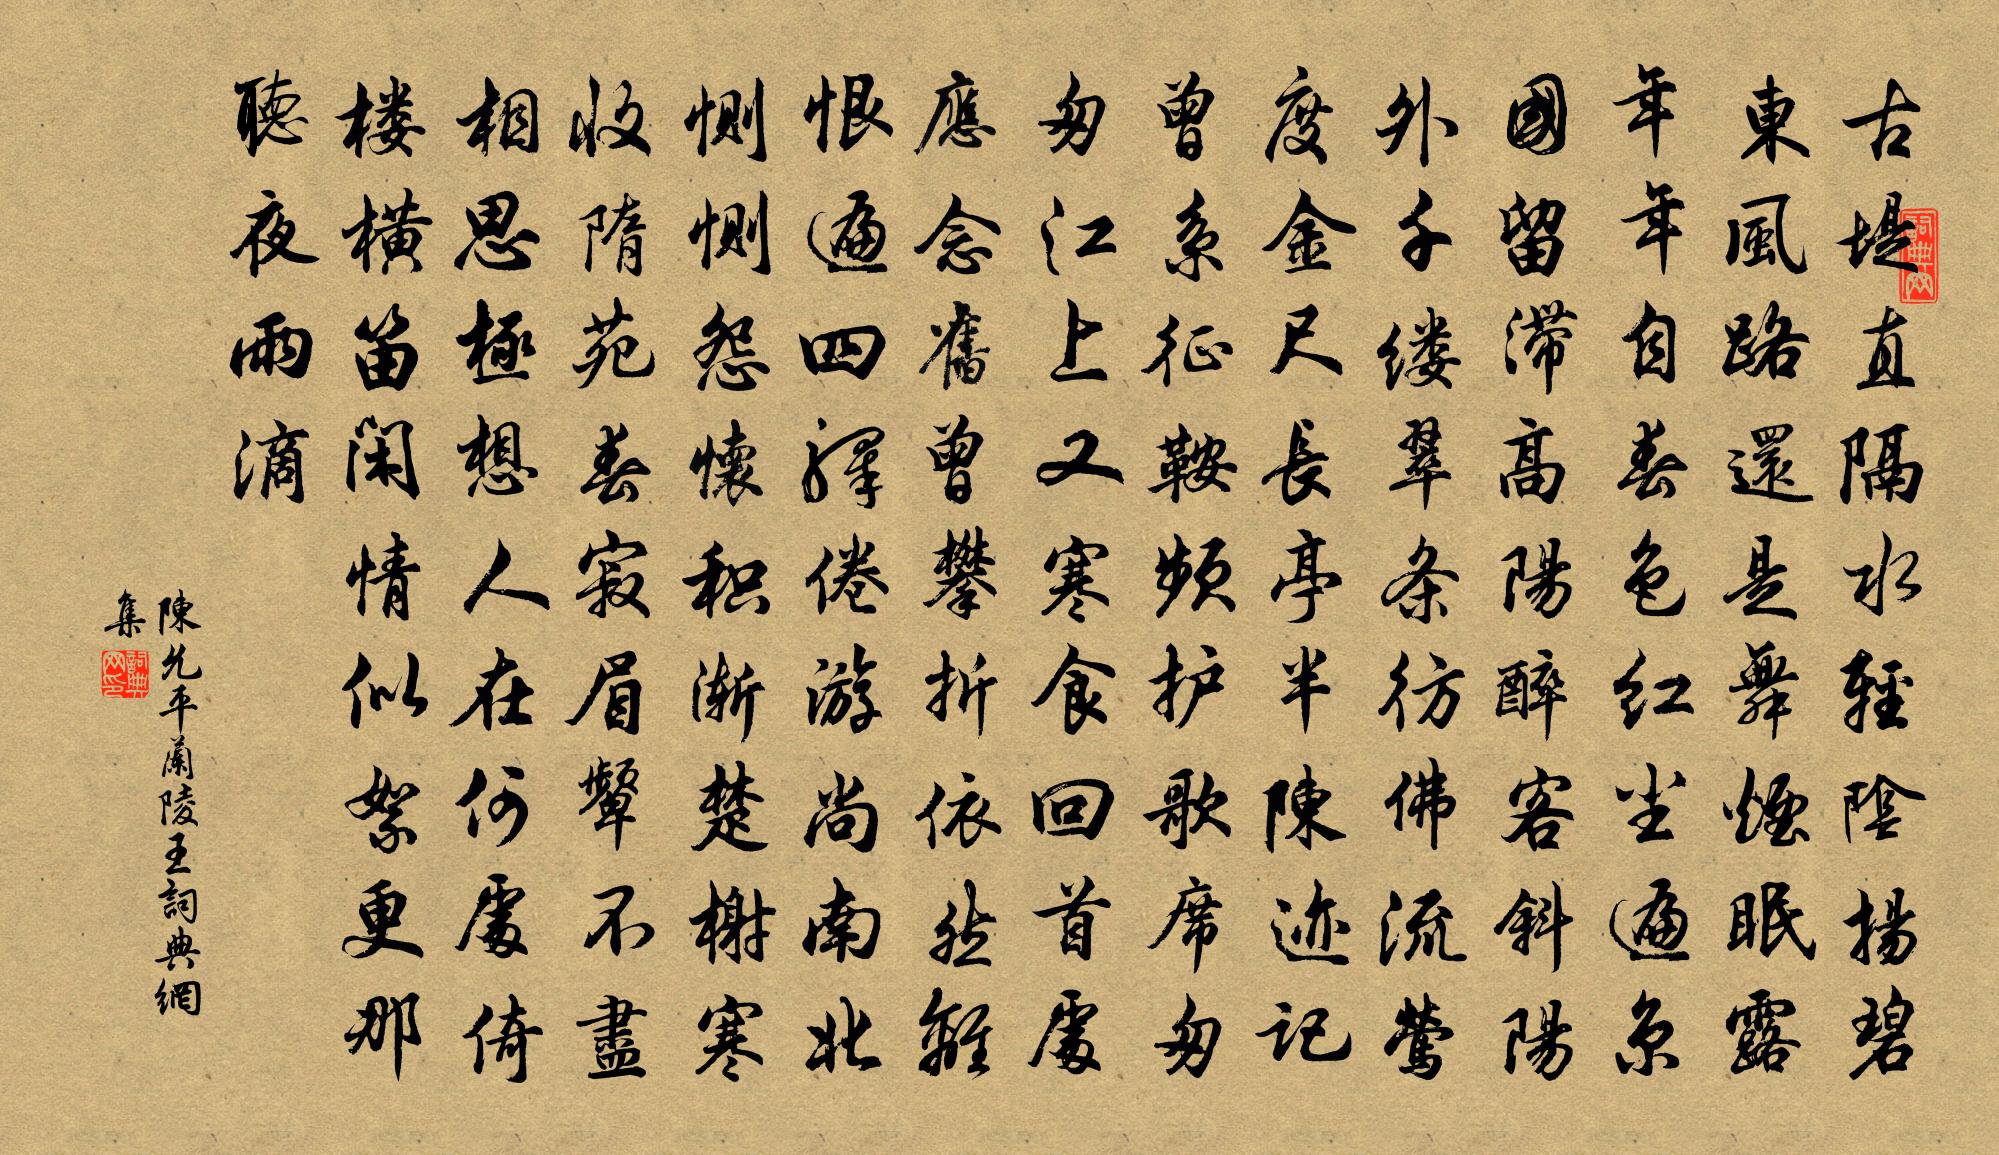 古堤直隔水輕陰揚碧
東風路還是舞煙眠露
年年自春色红尘遍京
國留滯高陽醉客斜陽
外千缕翠条彷佛流莺
度金尺長亭半陳迹記
曾系征鞍頻护歌席匆
匆江上又寒食回首處
應念舊曾攀折依然離
恨遍四驛倦游尚南北
惻惻怨懷积渐楚榭寒
收隋苑春寂眉颦不盡
相思極想人在何處倚
楼横笛闲情似絮更那
聽夜雨滴
陳允平蘭陵王詞典網
集
词典网
詞典网印